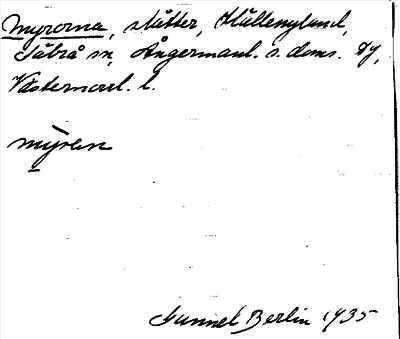 Myrorna, slåtter, Hällenyland,
Säbrå sn, Ångermanl. s. doms. dy,
Västernorrl. l.
myren
Gunnel Berlin 1935